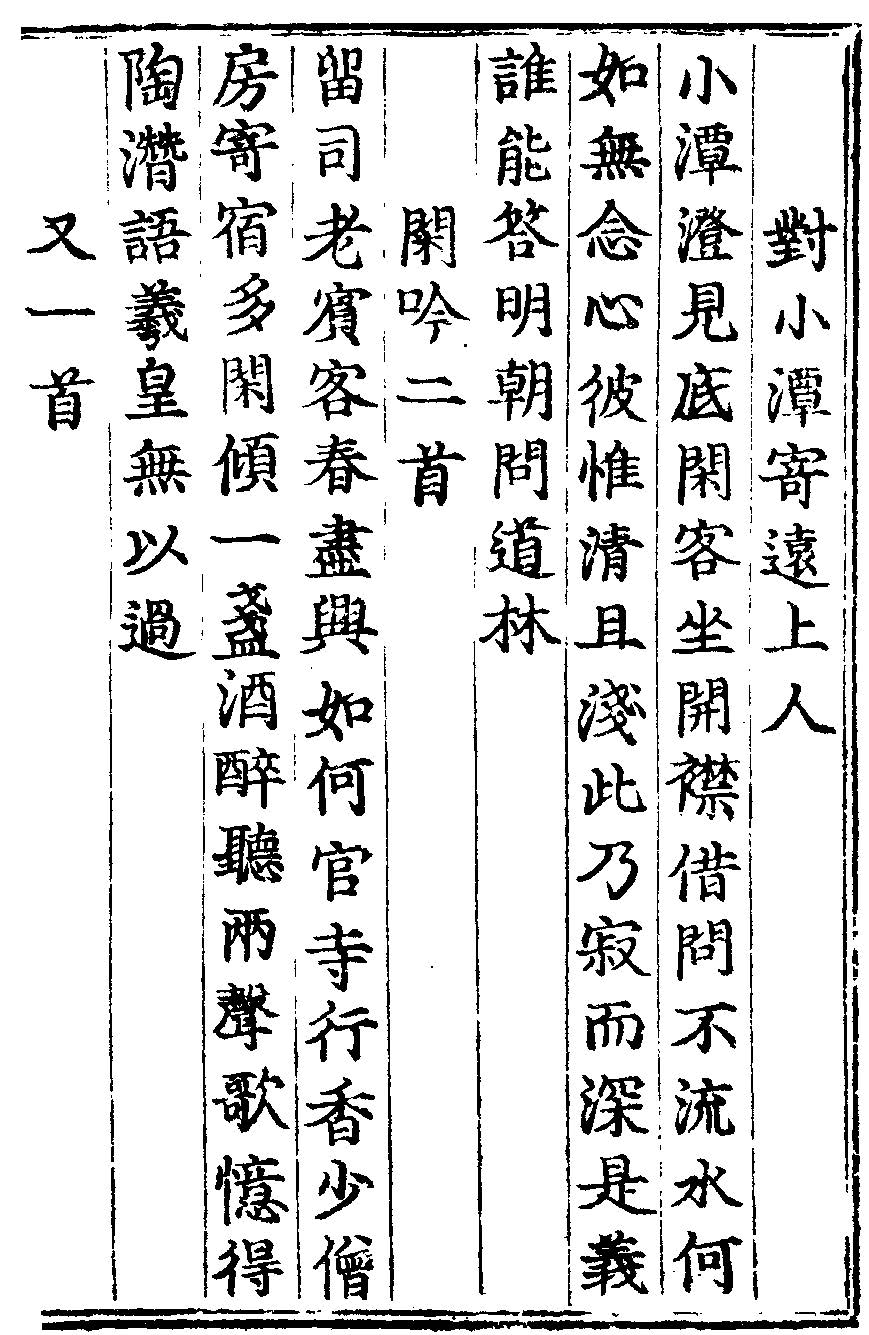 對小潭寄遠上人
小潭澄見底閑客坐開襟借問不流水何
如無念心彼惟清且淺此乃寂而深是義
誰能答明朝問道林
閑吟二首
留司老賓客春盡興如何官寺行香少僧
房寄宿多閑傾一盞酒醉聽兩聲歌憶得
陶潛語羲皇無以過
又一首